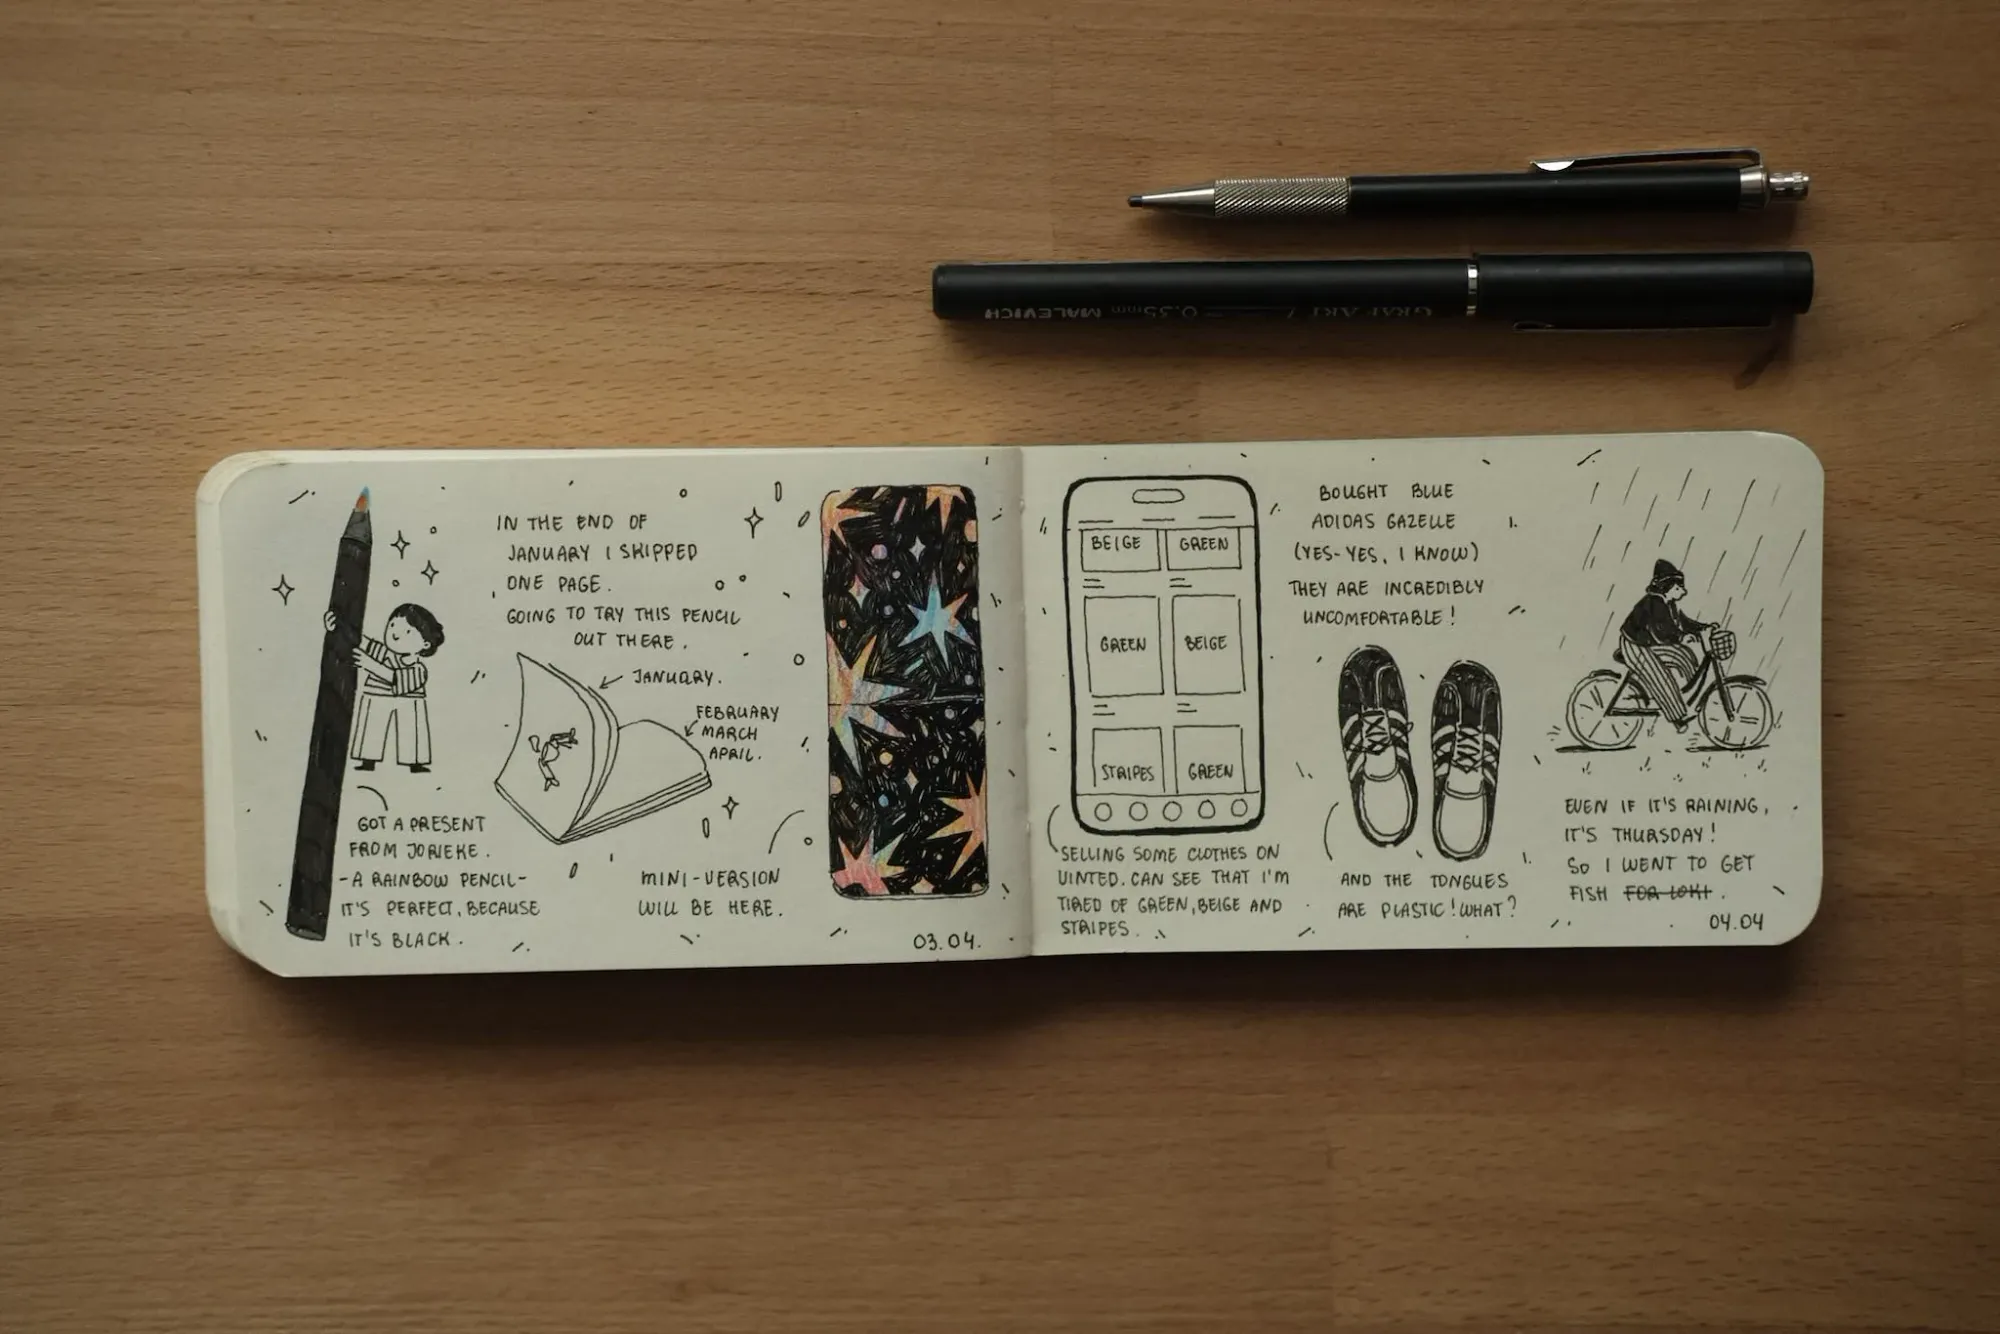 GRAF'ART
0.35mm MALEVICH
GOT A PRESENT
FROM JORIEKE.
-A RAINBOW PENCIL-
IT'S PERFECT, BECAUSE
IT'S BLACK.
IN THE END OF
JANUARY I SKIPPED
ONE PAGE.
GOING TO TRY THIS PENCIL
OUT THERE.
JANUARY.
FEBRUARY
MARCH
APRIL.
MINI-VERSION
WILL BE HERE.
03.04.
BEIGE
GREEN
GREEN
BEIGE
STRIPES
GREEN
SELLING SOME CLOTHES ON
VINTED. CAN SEE THAT I'M
TIRED OF GREEN, BEIGE AND
STRIPES.
BOUGHT BLUE
ADIDAS GAZELLE
(YES-YES, I KNOW)
THEY ARE INCREDIBLY
UNCOMFORTABLE!
AND THE TONGUES
ARE PLASTIC! WHAT?
EVEN IF IT'S RAINING,
IT'S THURSDAY!
SO I WENT TO GET
FISH FOR LOKI.
04.04